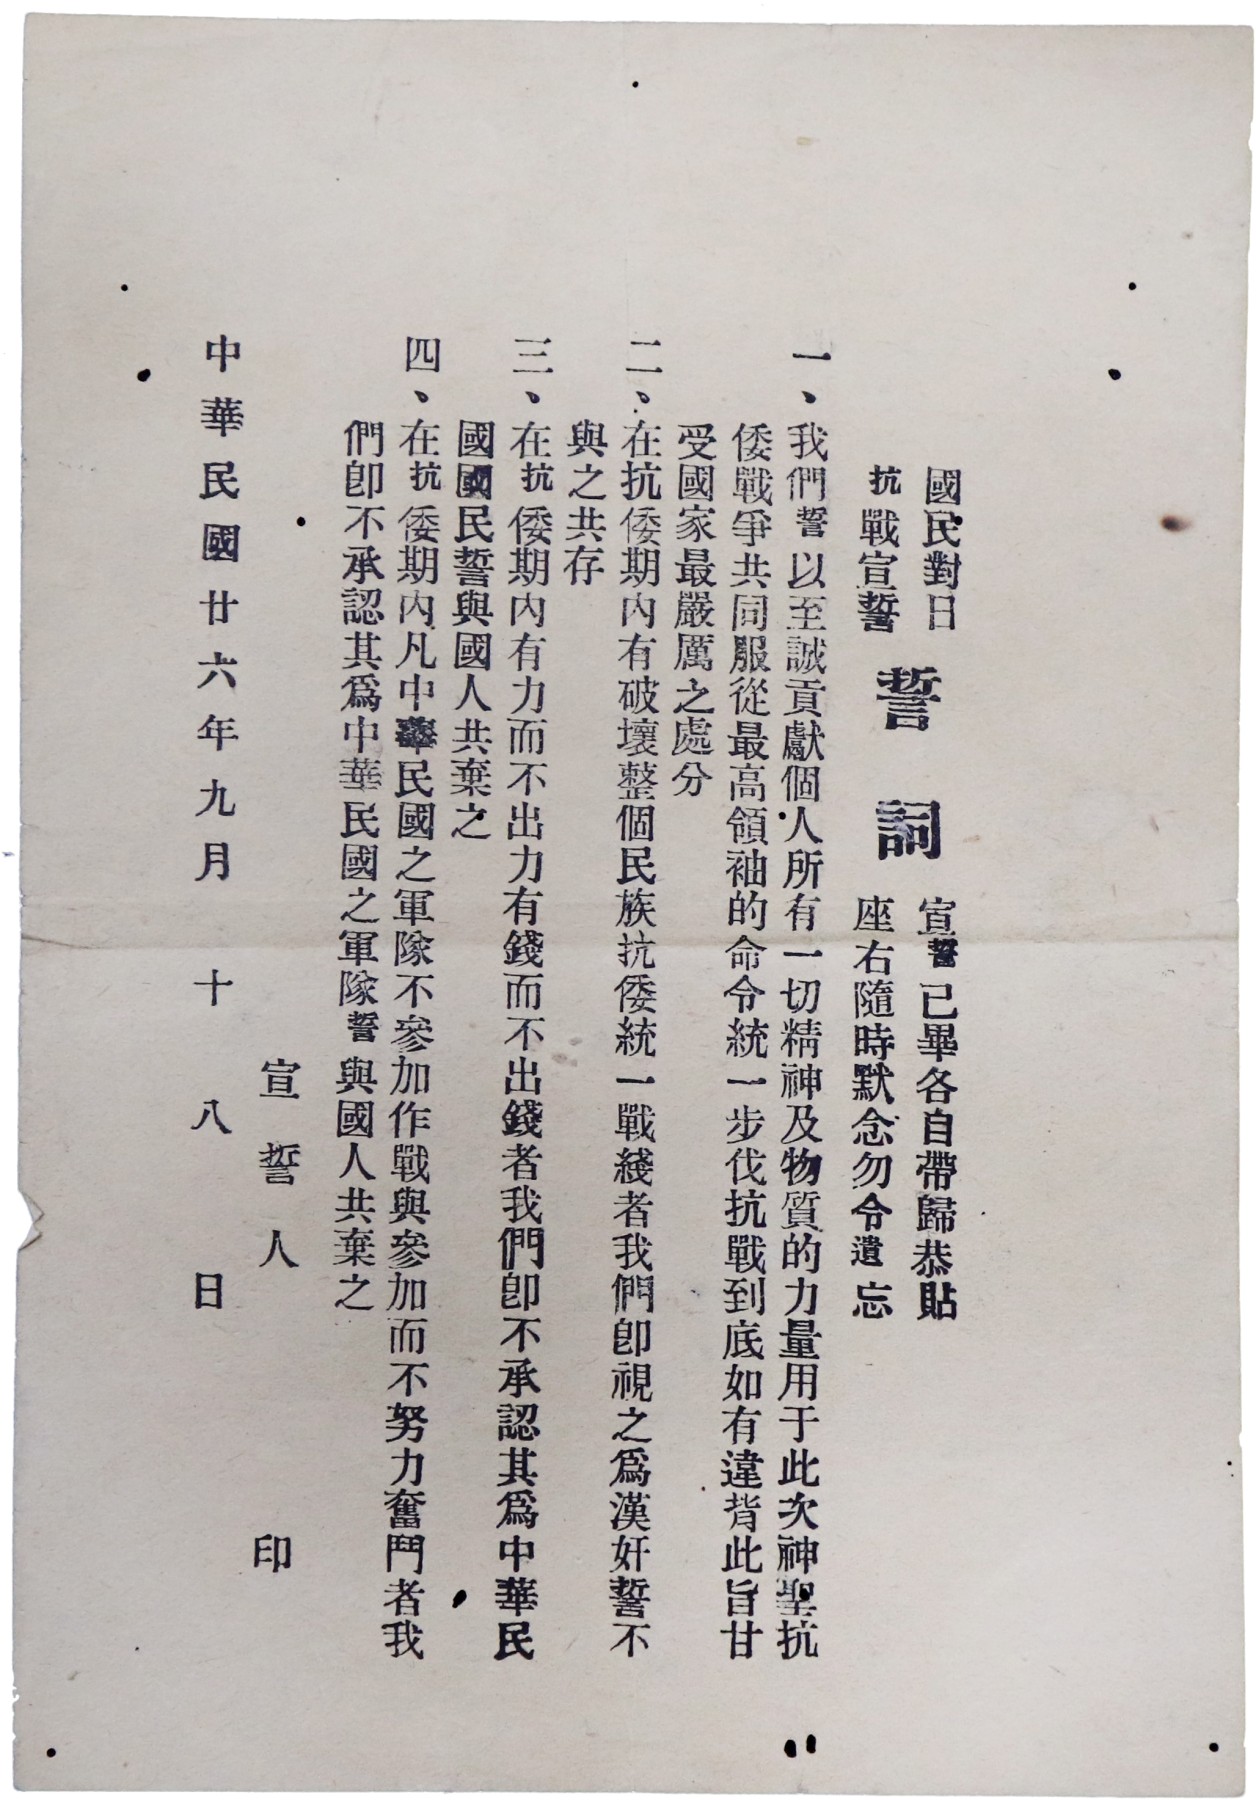 國民對日
抗戰宣誓
誓詞
宣誓已畢各自帶歸恭貼
座右隨時默念勿令遺忘
一、我們誓以至誠貢獻個人所有一切精神及物質的力量用于此次神聖抗
倭戰爭共同服從最高領袖的命令統一步伐抗戰到底如有違背此旨甘
受國家最嚴厲之處分
二、在抗倭期內有破壞整個民族抗倭統一戰綫者我們卽視之爲漢奸誓不
與之共存
三、在抗倭期內有力而不出力有錢而不出錢者我們卽不承認其爲中華民
國國民誓與國人共棄之
四、在抗倭期內凡中華民國之軍隊不參加作戰與參加而不努力奮鬥者我
們卽不承認其爲中華民國之軍隊誓與國人共棄之
宣誓人 印
中華民國廿六年九月十八日